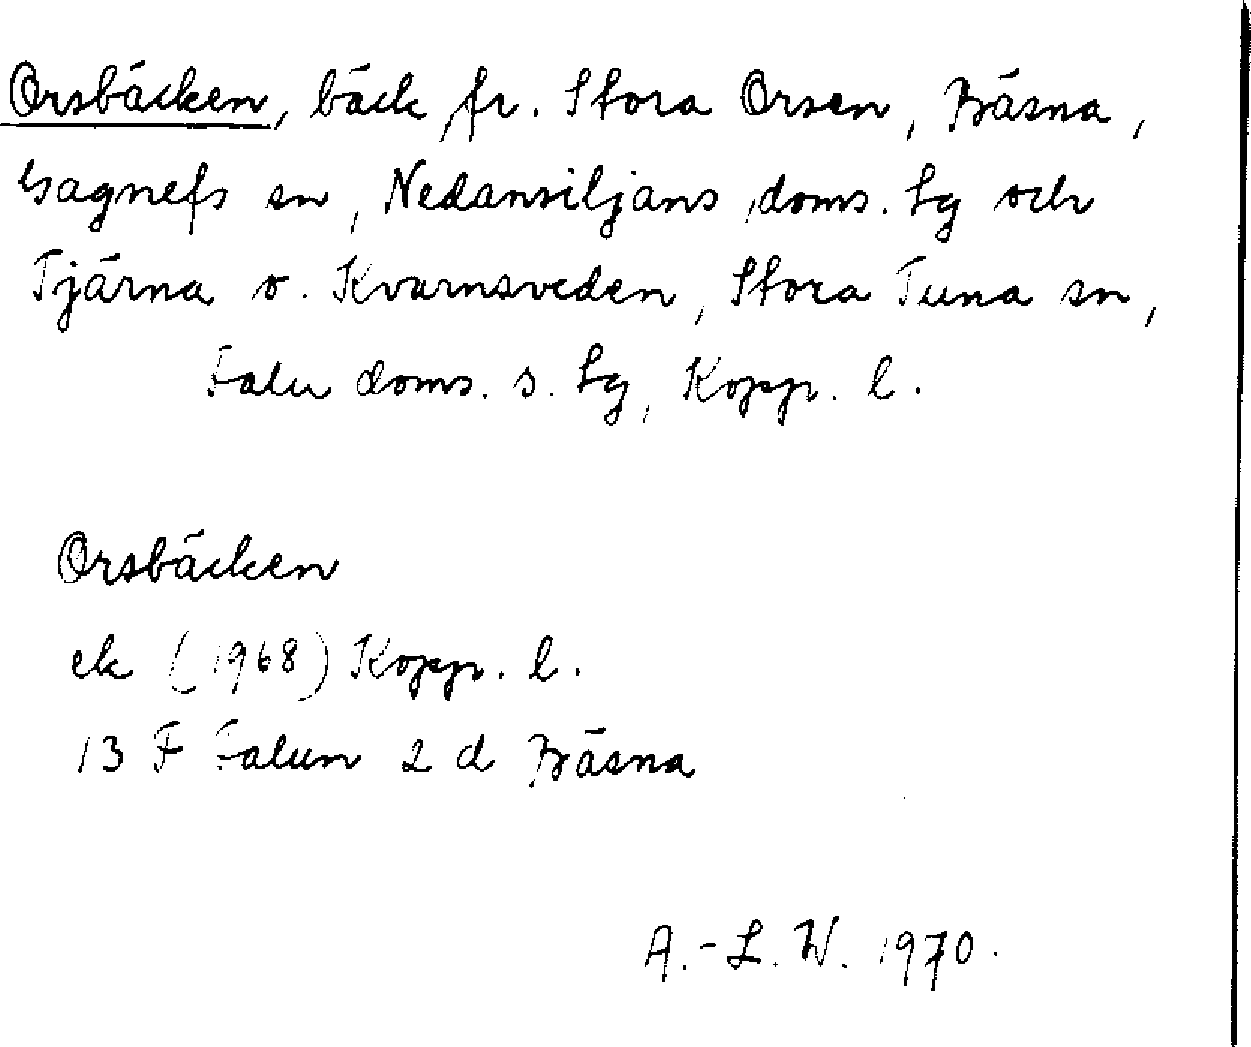 Orsbäcken, bäck fr. Stora Orsen, Bäsna,
Gagnefs sn, Nedansiljans doms. tg och
Tjärna o. Kvarnsveden, Stora Tuna sn,
Falu doms. s. tg, Kopp. l.
Orsbäcken
ek (1968) Kopp. l.
13 F Falun 2 d Bäsna
A.-L. W. 1970.